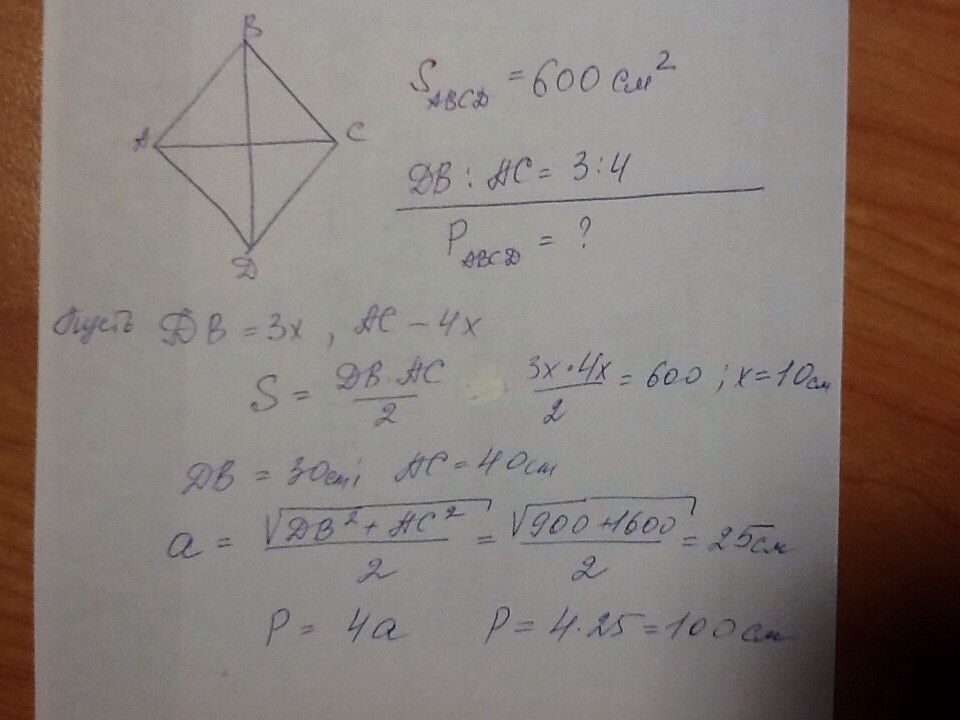 B
A
C
D
S_ABCD = 600 см²
DB : AC = 3:4
P_ABCD = ?
Пусть DB = 3x , AC - 4x
S = DB·AC/2 3x·4x/2 = 600 ; x=10см
DB = 30cm; AC = 40cm
a = √(DB²+AC²)/2 = √(900+1600)/2 = 25см
P = 4a P = 4·25=100см